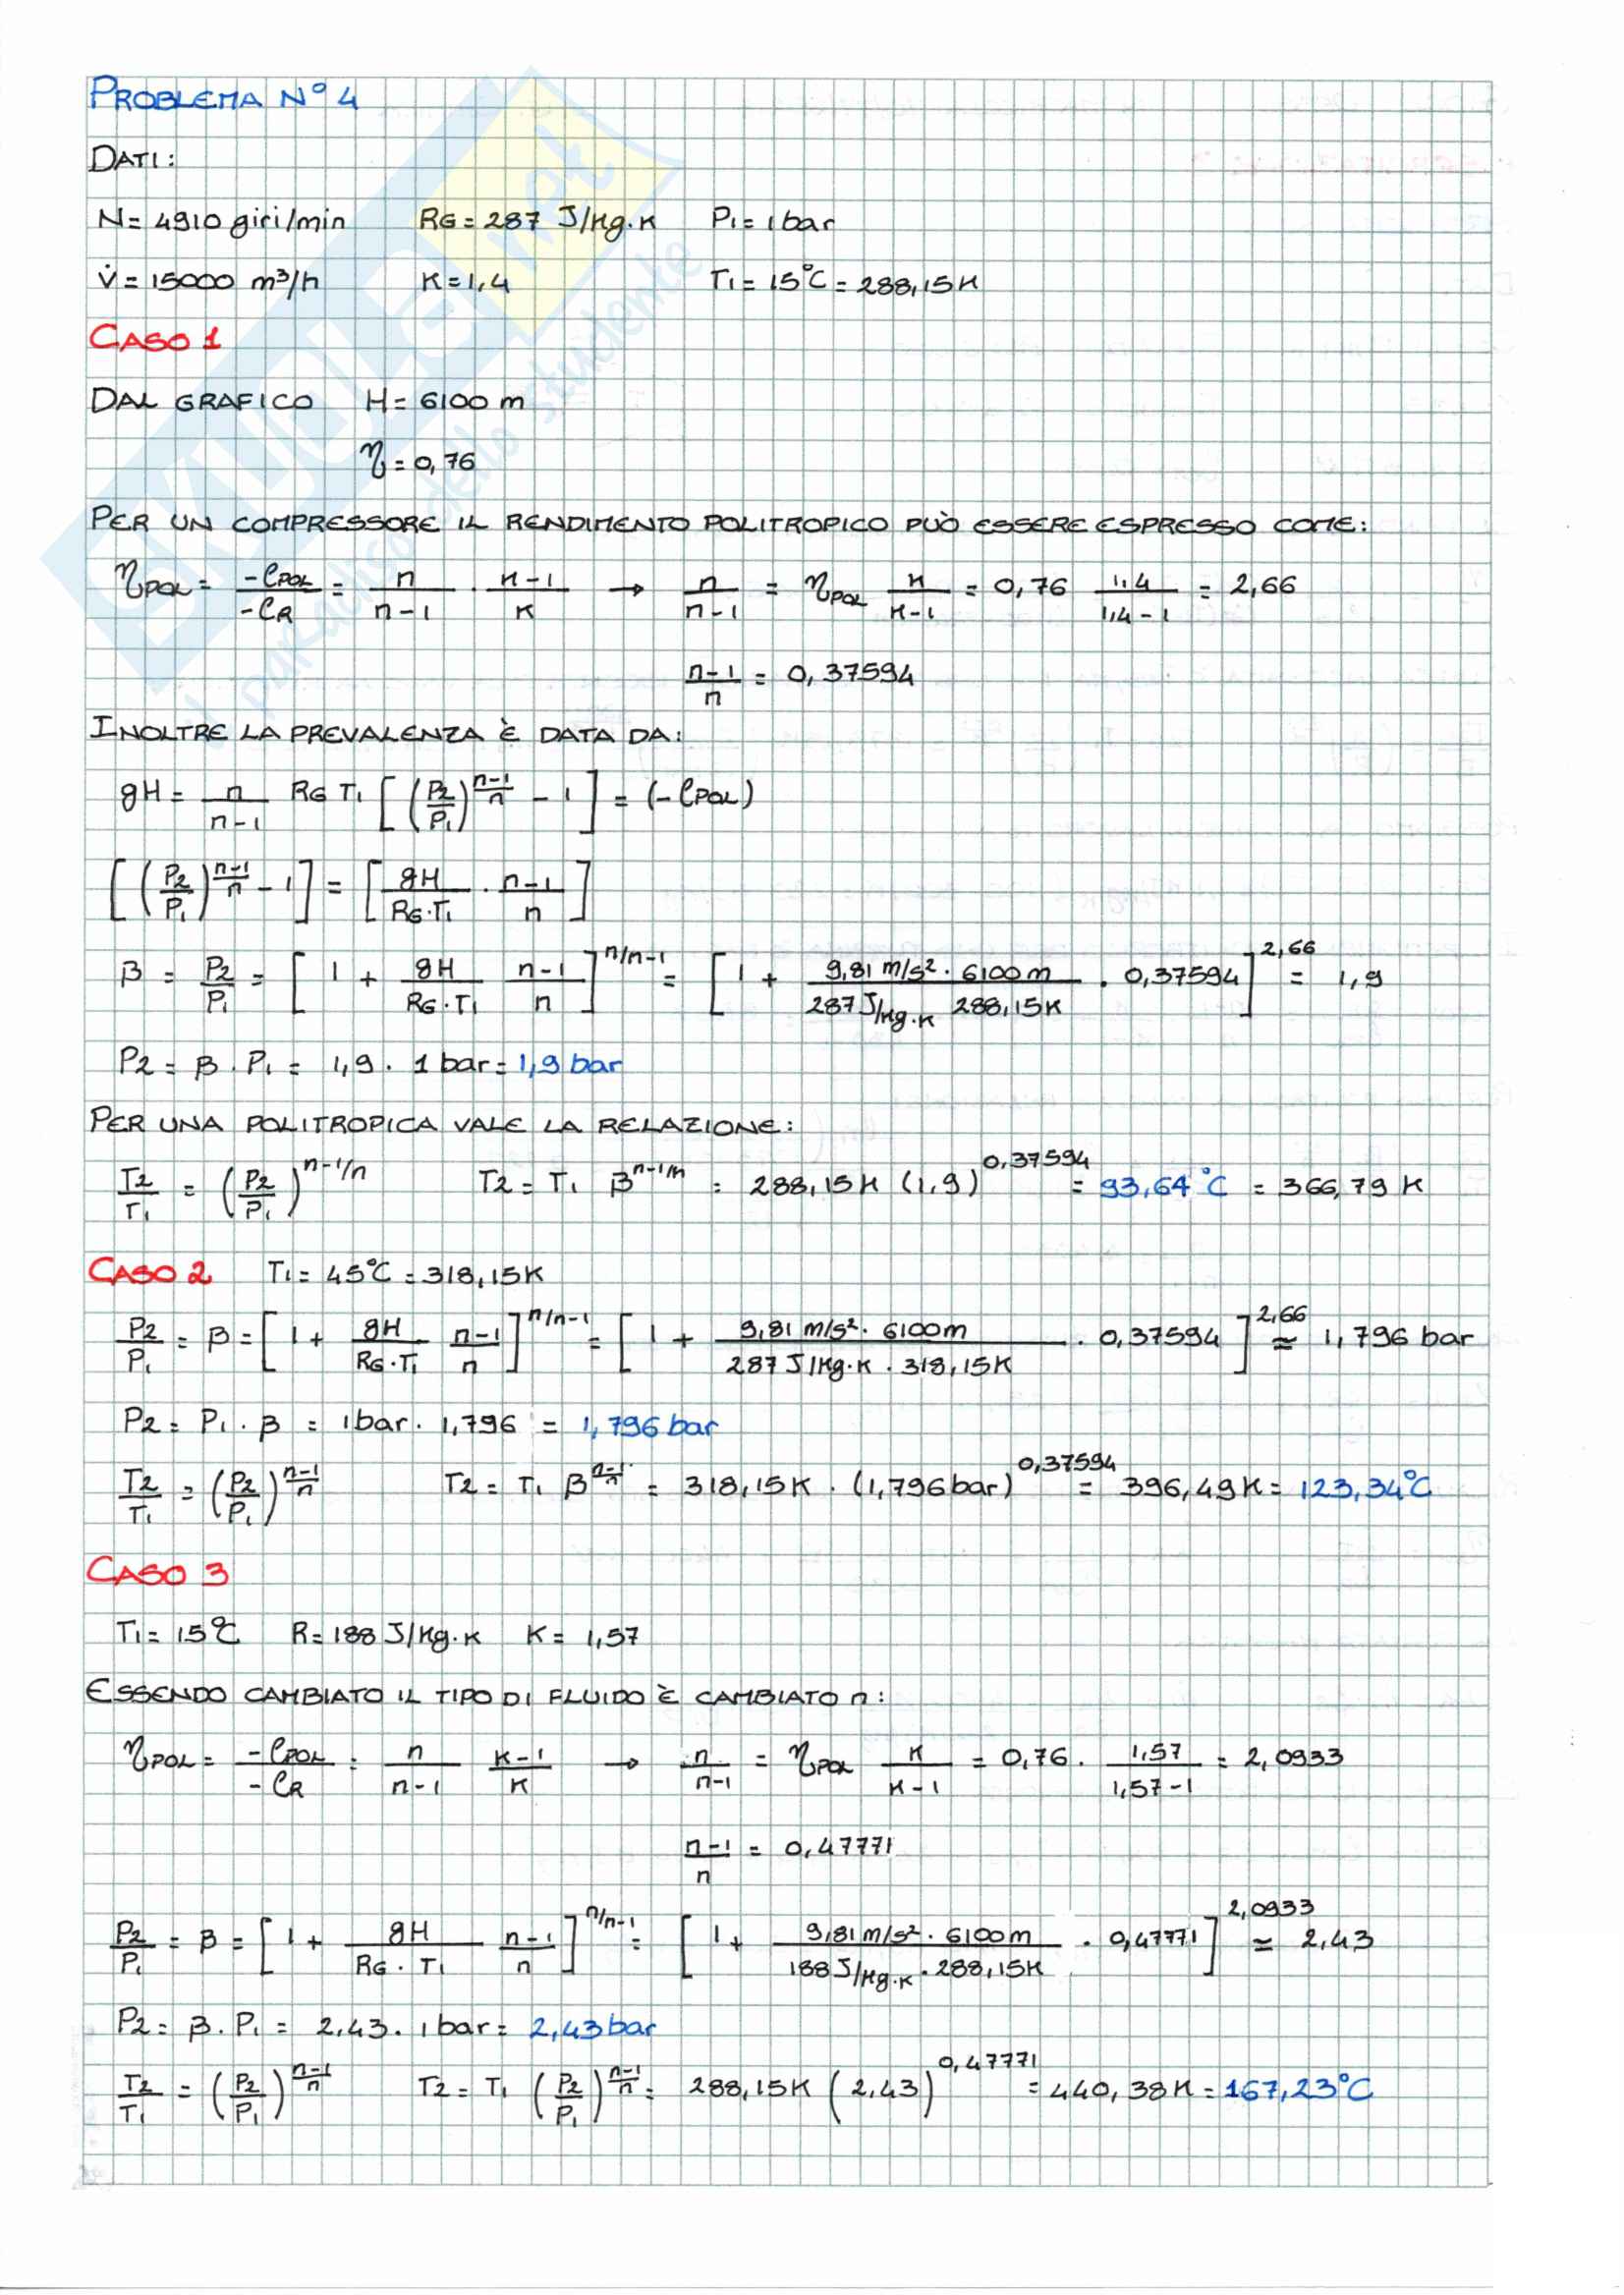 PROBLEMA N° 4
DATI:
N = 4910 giri/min RG = 287 J/kg·K P1 = 1 bar
V̇ = 15000 m³/h K = 1,4 T1 = 15°C = 288,15K
CASO 1
DAL GRAFICO H = 6100 m
η = 0,76
PER UN COMPRESSORE IL RENDIMENTO POLITROPICO PUÒ ESSERE ESPRESSO COME:
ηPOL = -ℓPOL/-ℓR = n/n-1 · K-1/K → n/n-1 = ηPOL K/K-1 = 0,76 1,4/1,4-1 = 2,66
n-1/n = 0,37594
INOLTRE LA PREVALENZA È DATA DA:
gH = n/n-1 RG T1 [(P2/P1)^n-1/n - 1] = (-ℓPOL)
[(P2/P1)^n-1/n - 1] = [gH/RG·T1 · n-1/n]
β = P2/P1 = [1 + gH/RG·T1 n-1/n]^n/n-1 = [1 + 9,81 m/s² · 6100 m/287 J/kg·K 288,15K · 0,37594]^2,66 = 1,9
P2 = β · P1 = 1,9 · 1 bar = 1,9 bar
PER UNA POLITROPICA VALE LA RELAZIONE:
T2/T1 = (P2/P1)^n-1/n T2 = T1 β^n-1/n = 288,15K (1,9)^0,37594 = 93,64°C = 366,79 K
CASO 2 T1 = 45°C = 318,15K
P2/P1 = β = [1 + gH/RG·T1 n-1/n]^n/n-1 = [1 + 9,81 m/s² · 6100m/287 J/kg·K · 318,15K · 0,37594]^2,66 ≃ 1,796 bar
P2 = P1 · β = 1bar · 1,796 = 1,796 bar
T2/T1 = (P2/P1)^n-1/n T2 = T1 β^n-1/n = 318,15K · (1,796 bar)^0,37594 = 396,49K = 123,34°C
CASO 3
T1 = 15°C R = 188 J/kg·K K = 1,57
ESSENDO CAMBIATO IL TIPO DI FLUIDO È CAMBIATO n:
ηPOL = -ℓPOL/-ℓR = n/n-1 K-1/K → n/n-1 = ηPOL K/K-1 = 0,76 · 1,57/1,57-1 = 2,0933
n-1/n = 0,47771
P2/P1 = β = [1 + gH/RG·T1 n-1/n]^n/n-1 = [1 + 9,81 m/s² · 6100m/188 J/kg·K · 288,15K · 0,47771]^2,0933 ≃ 2,43
P2 = β · P1 = 2,43 · 1 bar = 2,43 bar
T2/T1 = (P2/P1)^n-1/n T2 = T1 (P2/P1)^n-1/n = 288,15K (2,43)^0,47771 = 440,38K = 167,23°C
SKUOLA.net
il paradiso dello studente